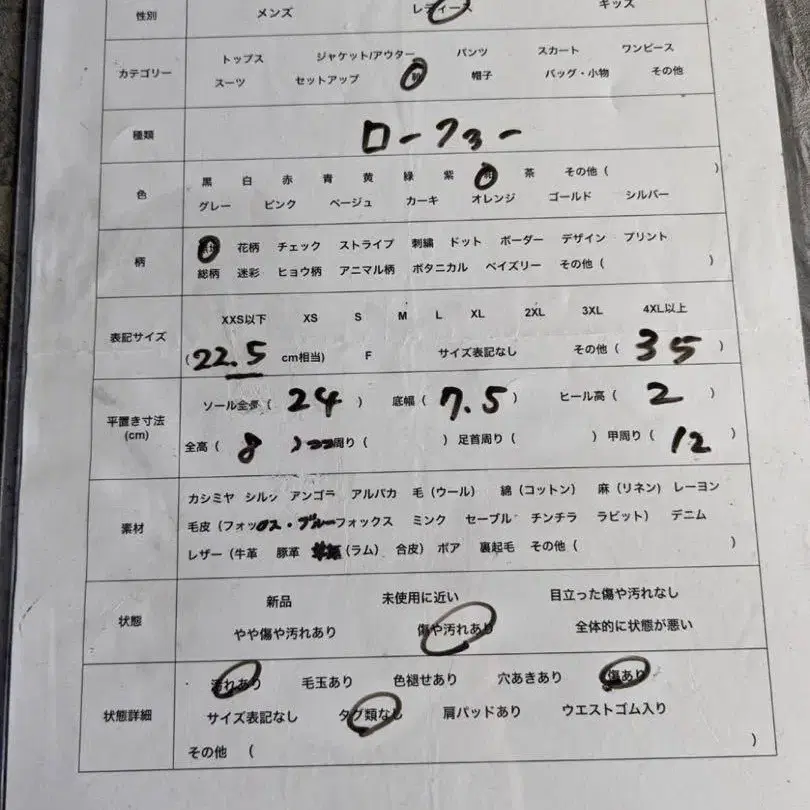 性別 メンズ レディース キッズ
カテゴリー トップス ジャケット/アウター パンツ スカート ワンピース
スーツ セットアップ 帽子 バッグ・小物 その他
種類 ローファー
色 黒 白 赤 青 黄 緑 紫 茶 その他 ( )
グレー ピンク ベージュ カーキ オレンジ ゴールド シルバー
柄 花柄 チェック ストライプ 刺繍 ドット ボーダー デザイン プリント
総柄 迷彩 ヒョウ柄 アニマル柄 ボタニカル ペイズリー その他 ( )
表記サイズ XXS以下 XS S M L XL 2XL 3XL 4XL以上
(22.5 cm相当) F サイズ表記なし その他 ( 35 )
平置き寸法 (cm) ソール全長 ( 24 ) 底幅 ( 7.5 ) ヒール高 ( 2 )
全高 ( 8 ) 周り ( ) 足首周り ( ) 甲周り ( 12 )
素材 カシミヤ シルク アンゴラ アルパカ 毛 (ウール) 綿 (コットン) 麻 (リネン) レーヨン
毛皮 (フォックス・ブルーフォックス ミンク セーブル チンチラ ラビット) デニム
レザー (牛革 豚革 (ラム) 合皮) ボア 裏起毛 その他 ( )
状態 新品 未使用に近い 目立った傷や汚れなし
やや傷や汚れあり 傷や汚れあり 全体的に状態が悪い
状態詳細 汚れあり 毛玉あり 色褪せあり 穴あきあり 傷あり
サイズ表記なし タグ類なし 肩パッドあり ウエストゴム入り
その他 ( )